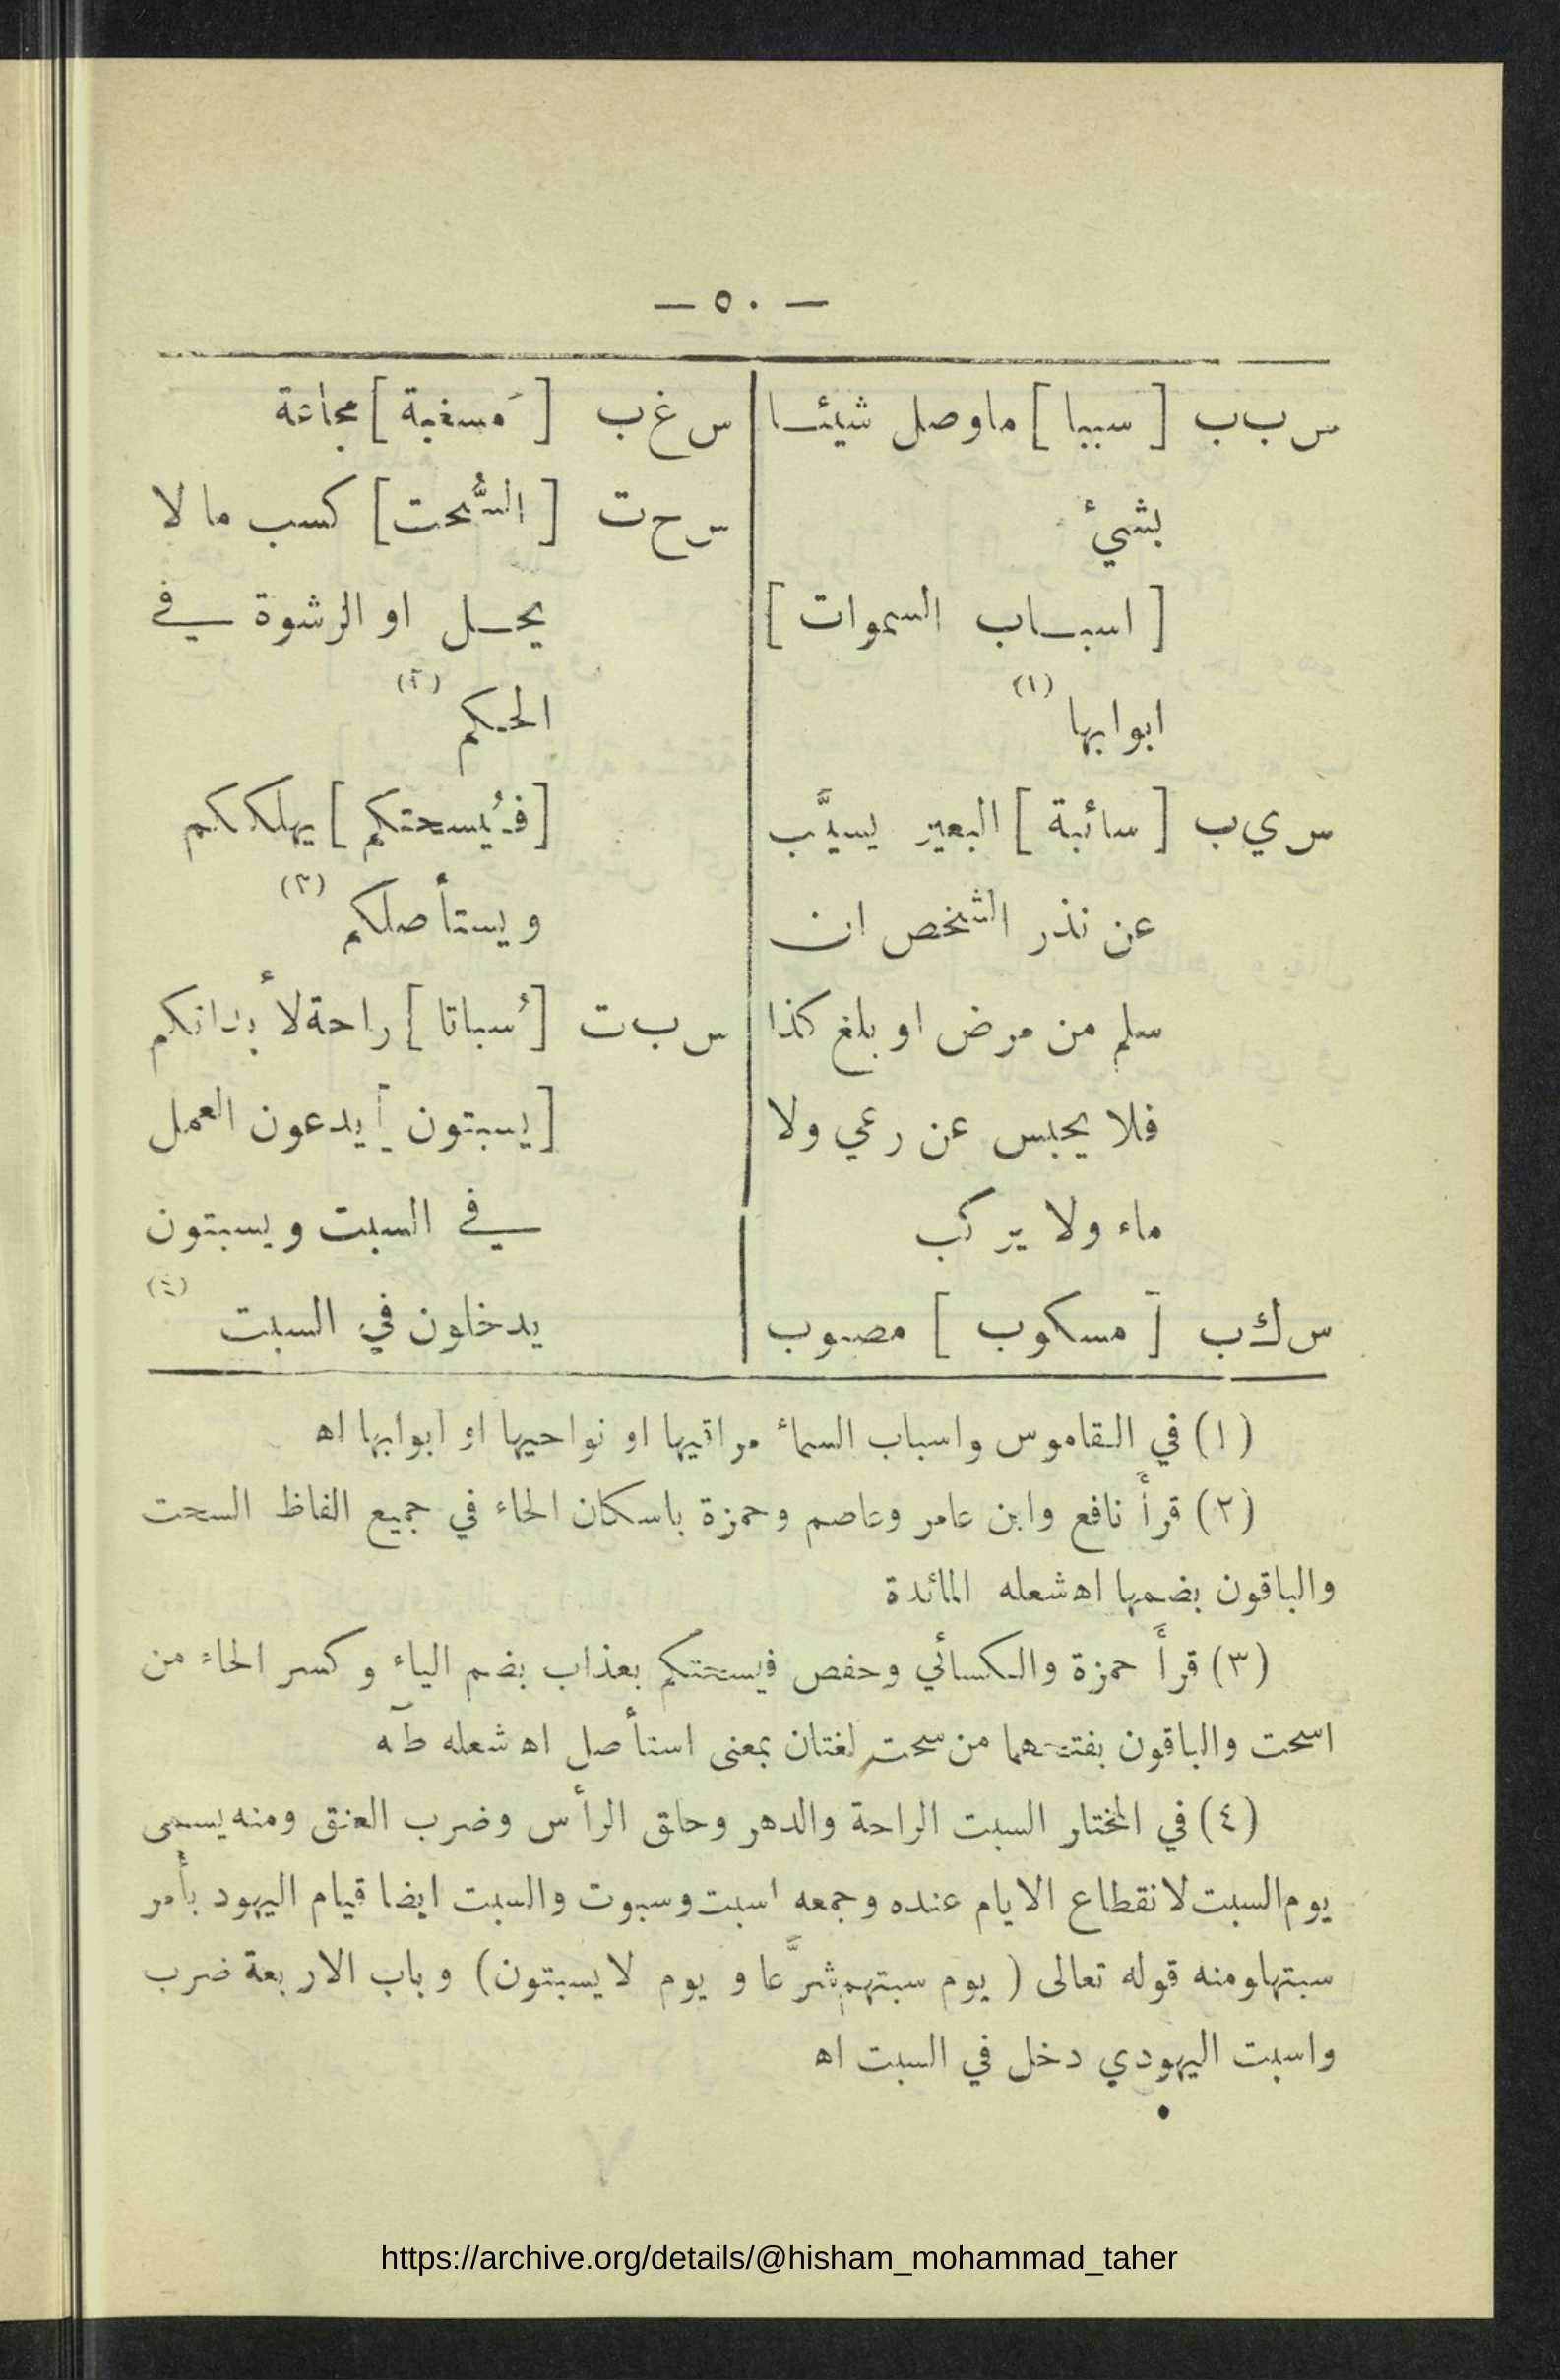 — ٥٠ —
س ب ب [ سببا ] ما وصل شيئا
بشيء
[ اسباب السموات ]
ابوابها (١)
س ي ب [ سائبة ] البعير يسيَّب
عن نذر الشخص ان
سلم من مرض او بلغ كذا
فلا يحبس عن رعي ولا
ماء ولا يركب
س ك ب [ مسكوب ] مصبوب
س غ ب [ مَسغبة ] مجاعة
س ح ت [ السُّحت ] كسب ما لا
يحل او الرشوة في
الحكم (٢)
[ فيُسحتكم ] يهلككم
ويستأصلكم (٣)
س ب ت [ سُباتا ] راحة لأبدانكم
[ يسبتون ] يدعون العمل
في السبت ويسبتون
يدخلون في السبت (٤)
(١) في القاموس واسباب السماء مراقيها او نواحيها او ابوابها اه
(٢) قرأَ نافع وابن عامر وعاصم وحمزة باسكان الحاء في جميع الفاظ السحت
والباقون بضمها اه شعله المائدة
(٣) قرأَ حمزة والكسائي وحفص فيسحتكم بعذاب بضم الياء وكسر الحاء من
اسحت والباقون بفتحهما من سحت لغتان بمعنى استأصل اه شعله طآه
(٤) في المختار السبت الراحة والدهر وحلق الرأس وضرب العنق ومنه يسمى
يوم السبت لانقطاع الايام عنده وجمعه اسبت وسبوت والسبت ايضا قيام اليهود بأمر
سبتها ومنه قوله تعالى ( يوم سبتهم شرَّعا و يوم لا يسبتون ) وباب الاربعة ضرب
واسبت اليهودي دخل في السبت اه
https://archive.org/details/@hisham_mohammad_taher